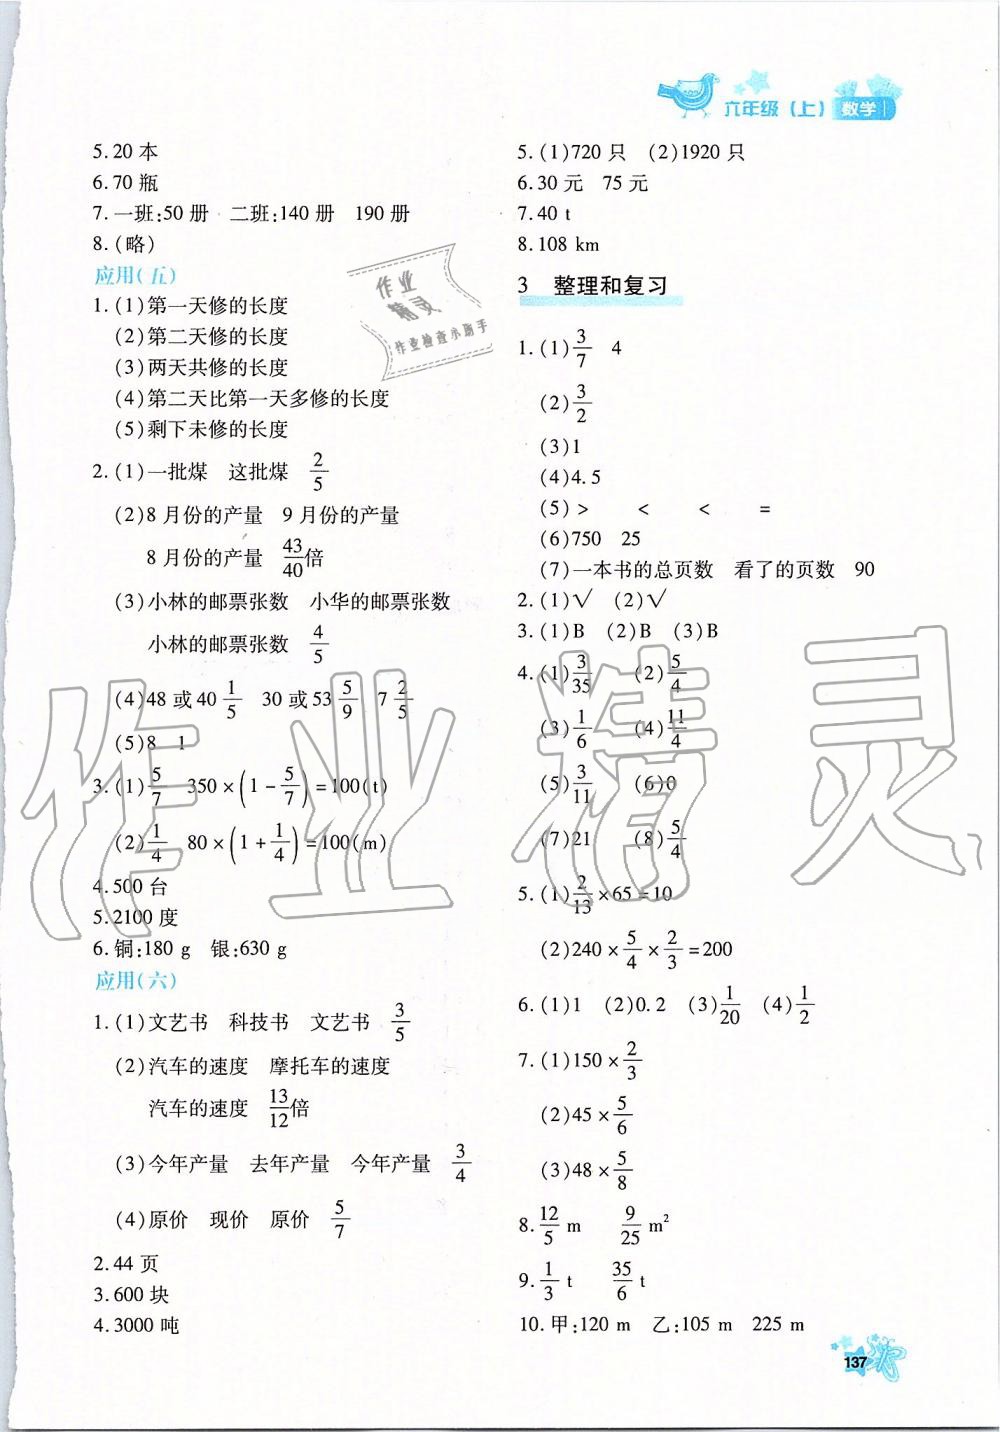 六年级（上） 数学
5.20 本
6.70 瓶
7.一班:50 册 二班:140 册 190 册
8.(略)
应用(五)
1.(1)第一天修的长度
(2)第二天修的长度
(3)两天共修的长度
(4)第二天比第一天多修的长度
(5)剩下未修的长度
2.(1)一批煤 这批煤 2/5
(2)8 月份的产量 9 月份的产量
8 月份的产量 43/40倍
(3)小林的邮票张数 小华的邮票张数
小林的邮票张数 4/5
(4)48 或 40 1/5 30 或 53 5/9 7 2/5
(5)8 1
3.(1)5/7 350×(1-5/7)=100(t)
(2)1/4 80×(1+1/4)=100(m)
4.500 台
5.2100 度
6.铜:180 g 银:630 g
应用(六)
1.(1)文艺书 科技书 文艺书 3/5
(2)汽车的速度 摩托车的速度
汽车的速度 13/12倍
(3)今年产量 去年产量 今年产量 3/4
(4)原价 现价 原价 5/7
2.44 页
3.600 块
4.3000 吨
5.(1)720 只 (2)1920 只
6.30 元 75 元
7.40 t
8.108 km
3 整理和复习
1.(1)3/7 4
(2)3/2
(3)1
(4)4.5
(5)> < < =
(6)750 25
(7)一本书的总页数 看了的页数 90
2.(1)√ (2)√
3.(1)B (2)B (3)B
4.(1)3/35 (2)5/4
(3)1/6 (4)11/4
(5)3/11 (6)0
(7)21 (8)5/4
5.(1)2/13×65=10
(2)240×5/4×2/3=200
6.(1)1 (2)0.2 (3)1/20 (4)1/2
7.(1)150×2/3
(2)45×5/6
(3)48×5/8
8.12/5 m 9/25 m²
9.1/3 t 35/6 t
10.甲:120 m 乙:105 m 225 m
137
作业
精灵
作业检查小助手
作业精灵